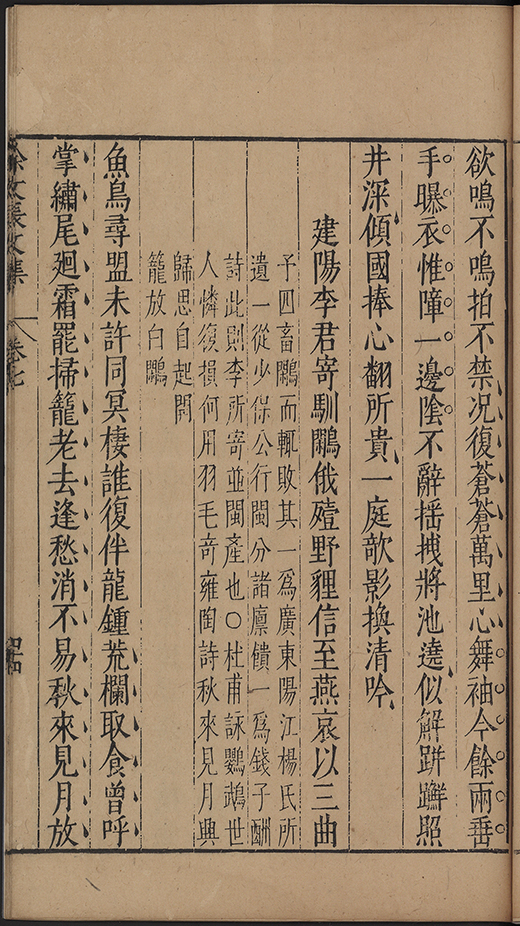 欲鳴不鳴拍不禁况復蒼蒼萬里心舞袖今餘兩垂
手曝衣惟障一邊陰不辭揺拽將池遶似解跰𨇤照
井深傾國捧心翻所貴一庭欹影換清吟
建陽李君寄馴鷴俄殪野貍信至燕哀以三曲
予四畜鷴而輒敗其一爲廣東陽江楊氏所
遺一從少保公行閩分諸廪饋一爲錢子酬
詩此則李所寄並閩產也○杜甫詠鸚鵡世
人憐復損何用羽毛奇雍陶詩秋來見月興
歸思自起開
籠放白鷴
魚鳥尋盟未許同冥棲誰復伴龍鍾荒欄取食曾呼
掌繡尾廻霜罷掃籠老去逢愁消不易秋來見月放
徐文長文集
卷七